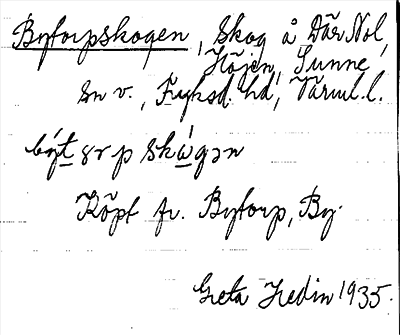 Bytorpskogen, Skog å Där Nol,
Höjen, Sunne
sn v., Fryksd. hd, Värml. l.
být ɤr p skὼgən
Köpt fr. Bytorp, By.
Greta Hedin 1935.